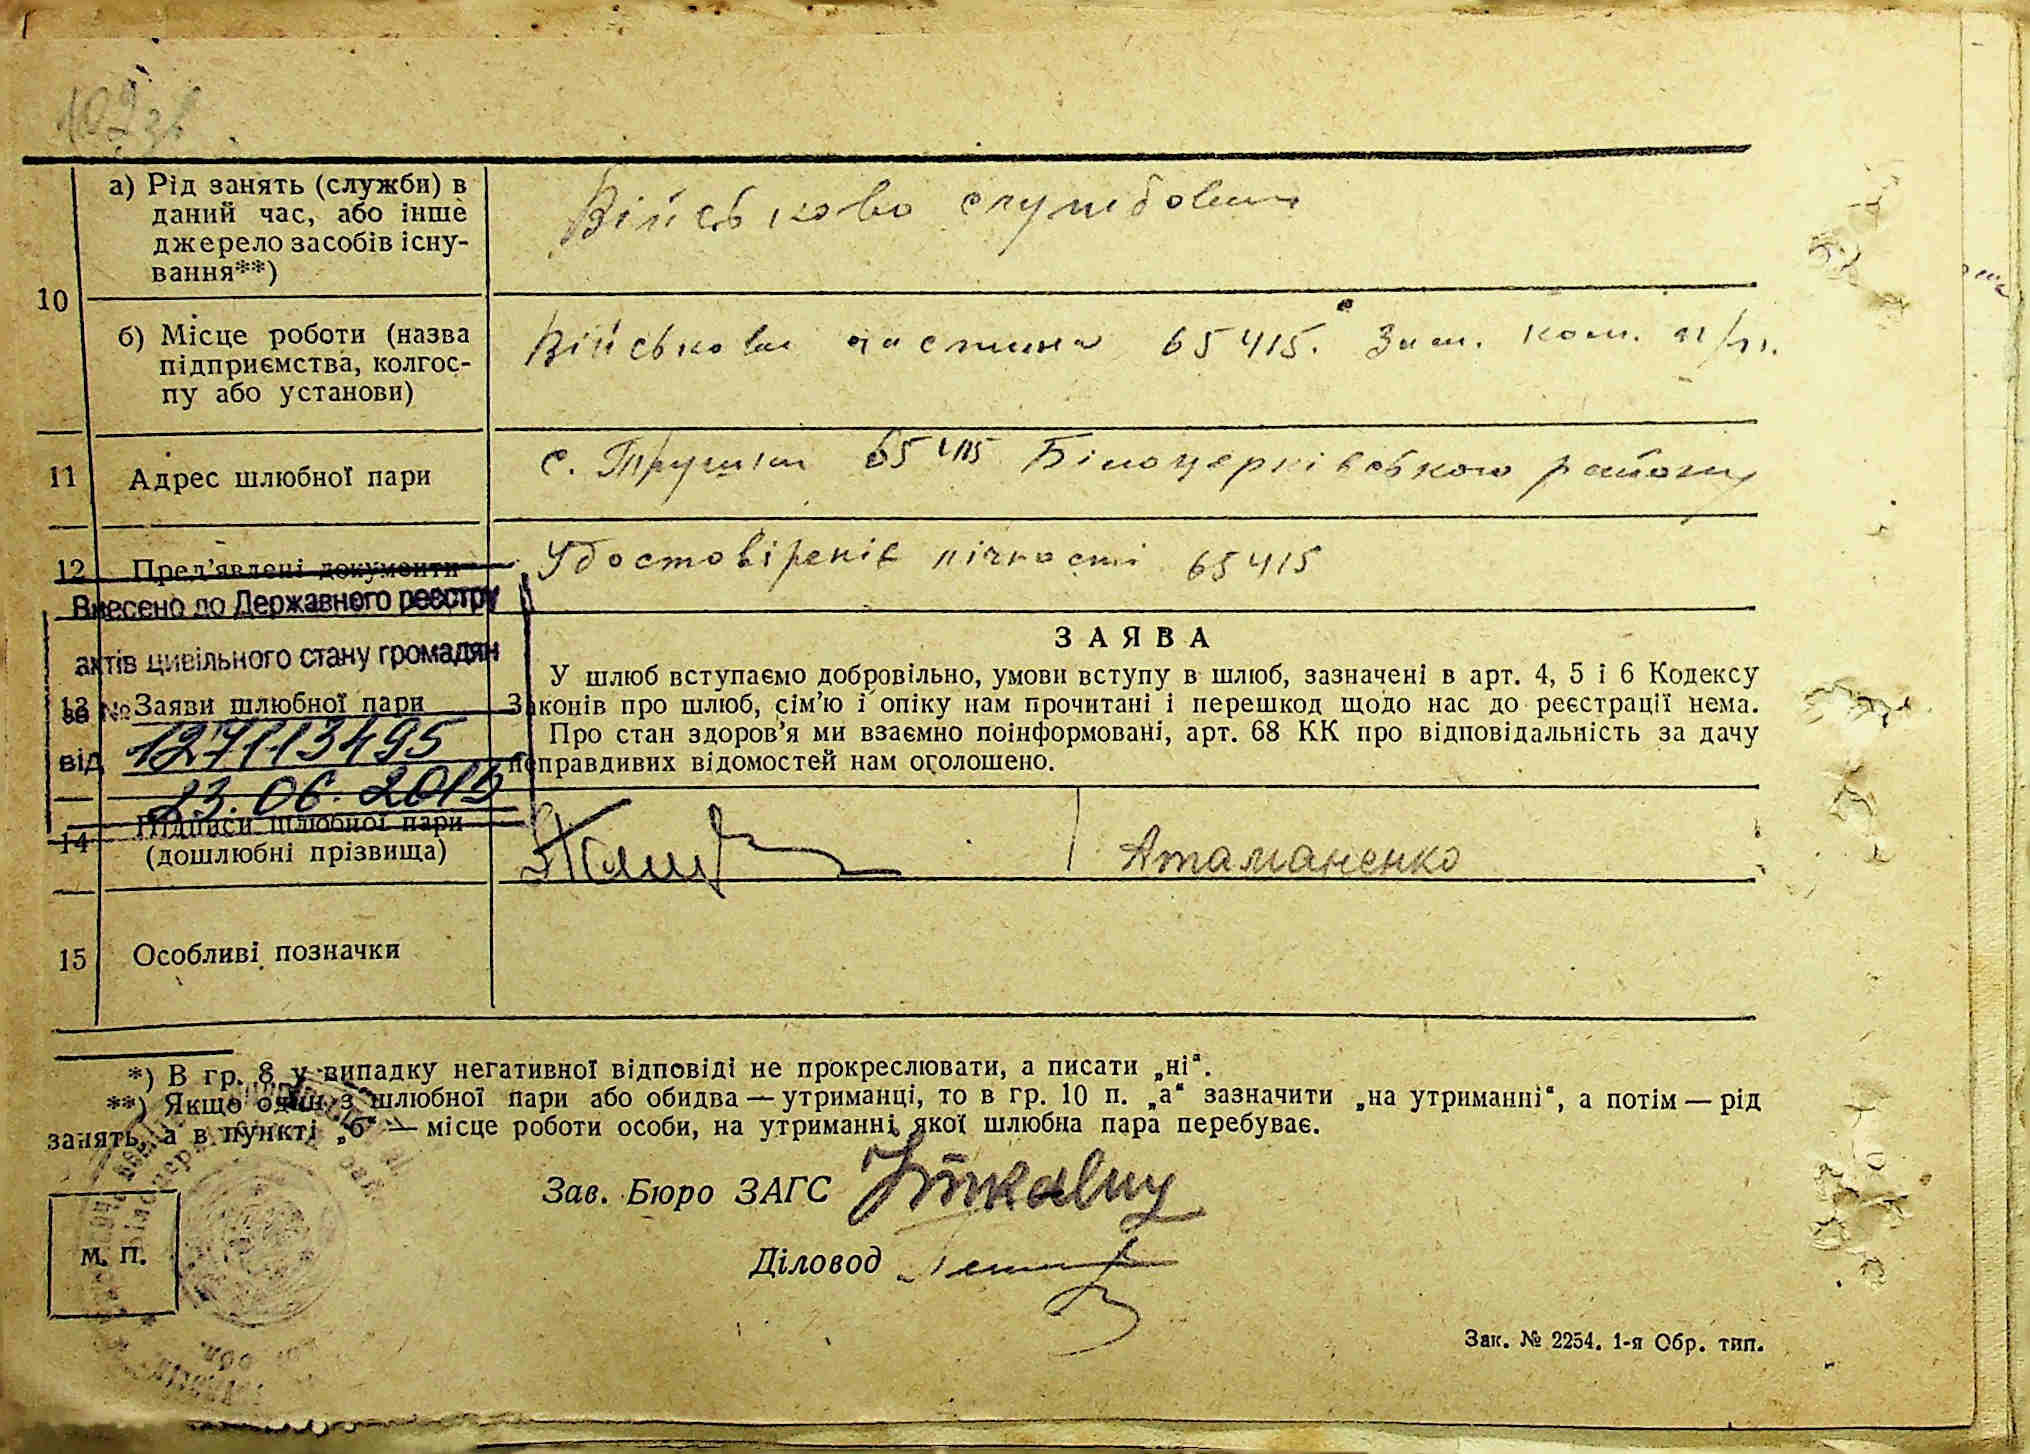 а) Рід занять (служби) в
даний час, або інше
джерело засобів існу-
вання**)
Військово службовец
10
б) Місце роботи (назва
підприємства, колгос-
пу або установи)
Військова частина 65415. Зам. ком. п/п.
11
Адрес шлюбної пари
с. Трушки 65415 Білоцерківського району
12
Пред'явлені документи
Удостовіреніє лічності 65415
Внесено до Державного реєстру
актів цивільного стану громадян
за № 127113495
від 23.06.2015
13
Заяви шлюбної пари
ЗАЯВА
У шлюб вступаємо добровільно, умови вступу в шлюб, зазначені в арт. 4, 5 і 6 Кодексу
Законів про шлюб, сім'ю і опіку нам прочитані і перешкод щодо нас до реєстрації нема.
Про стан здоров'я ми взаємно поінформовані, арт. 68 КК про відповідальність за дачу
неправдивих відомостей нам оголошено.
14
Підписи шлюбної пари
(дошлюбні прізвища)
Атаманенко
15
Особливі позначки
*) В гр. 8 у випадку негативної відповіді не прокреслювати, а писати „ні“.
**) Якщо один з шлюбної пари або обидва — утриманці, то в гр. 10 п. „а“ зазначити „на утриманні“, а потім — рід
занять, а в пункті „б“ — місце роботи особи, на утриманні якої шлюбна пара перебуває.
Зав. Бюро ЗАГС
Діловод
М. П.
Зак. № 2254. 1-я Обр. тип.